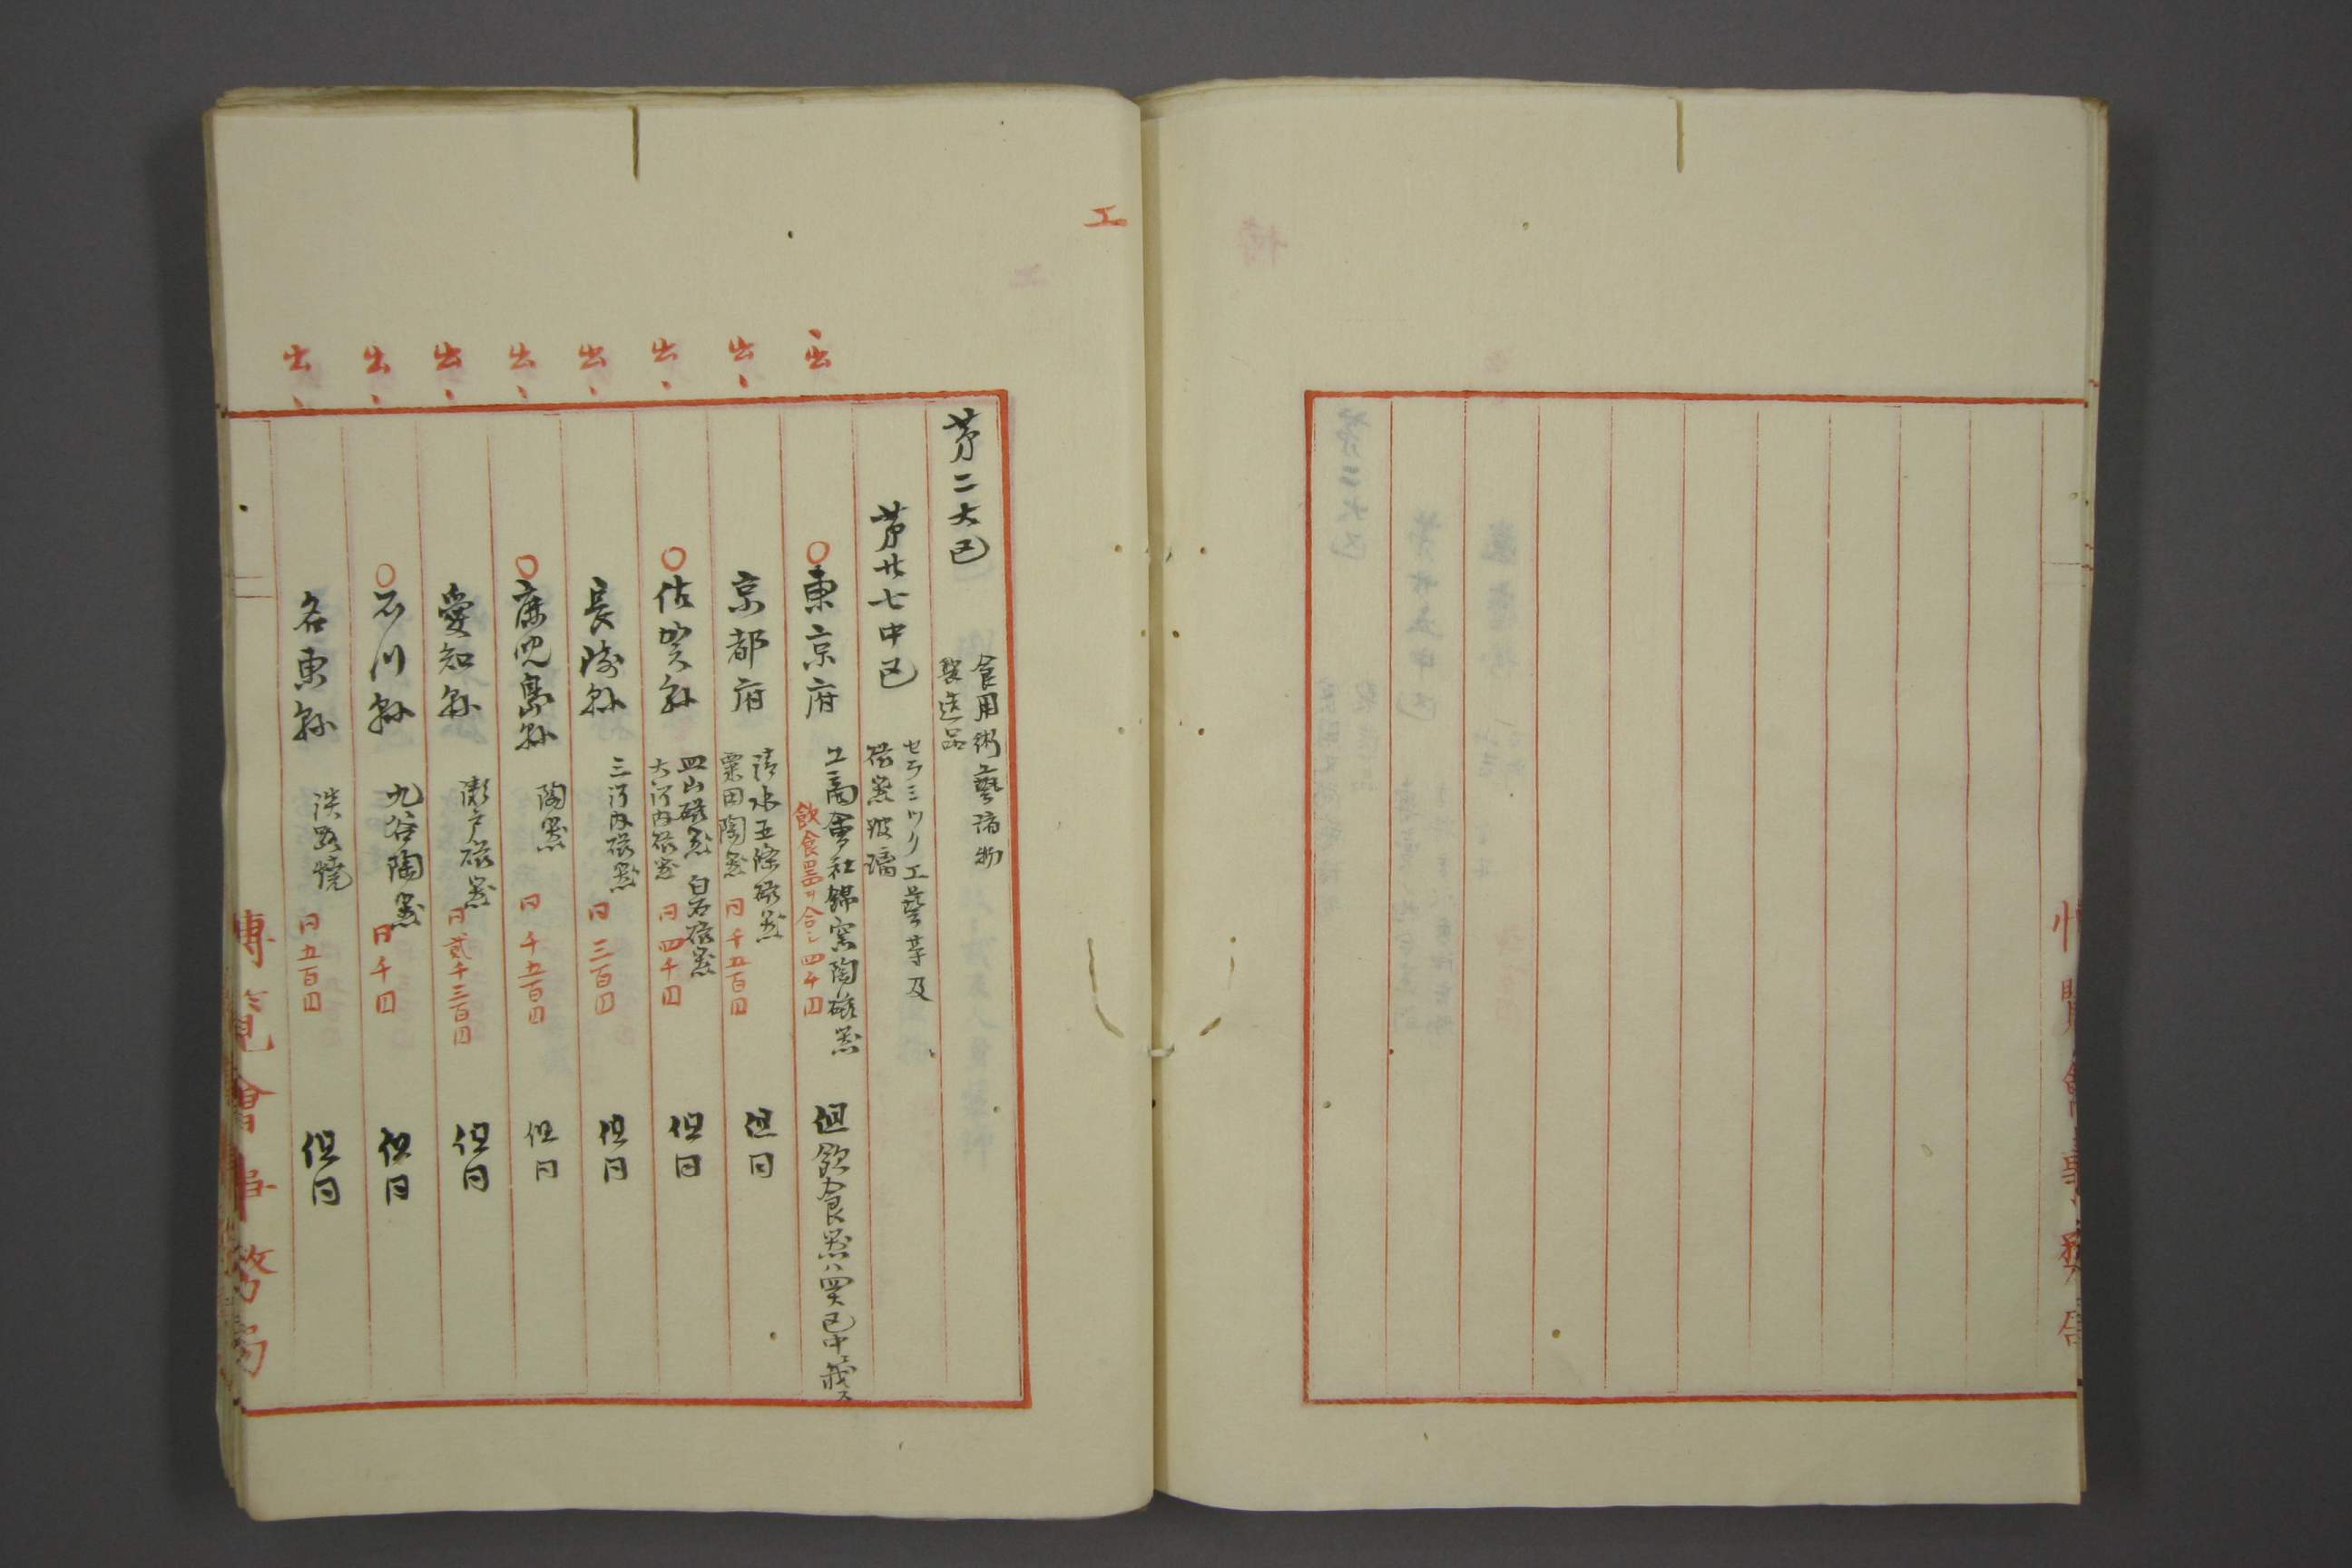 工
第二大区
食用術藝諸物
製造品
第廿七中区
セラミツク工藝等及
磁器玻璃
出、
○東京府
工商會社錦窯陶磁器
飲食器ヲ合シ四千円
但飲食器ハ四大区中ヱ載ス
出、
京都府
清水五條磁器
粟田陶器
円千五百円
但円
出、
○佐賀縣
皿山磁器 白石磁器
大河内磁器
円四千円
但円
出、
長崎縣
三河内磁器
円三百円
但円
出、
○鹿児島縣
陶器
円千五百円
但円
出、
愛知縣
瀬戸磁器
円貳千三百円
但円
出、
○石川縣
九谷陶器
円千円
但円
出、
名東縣
淡路焼
円五百円
但円
博覧會事務局